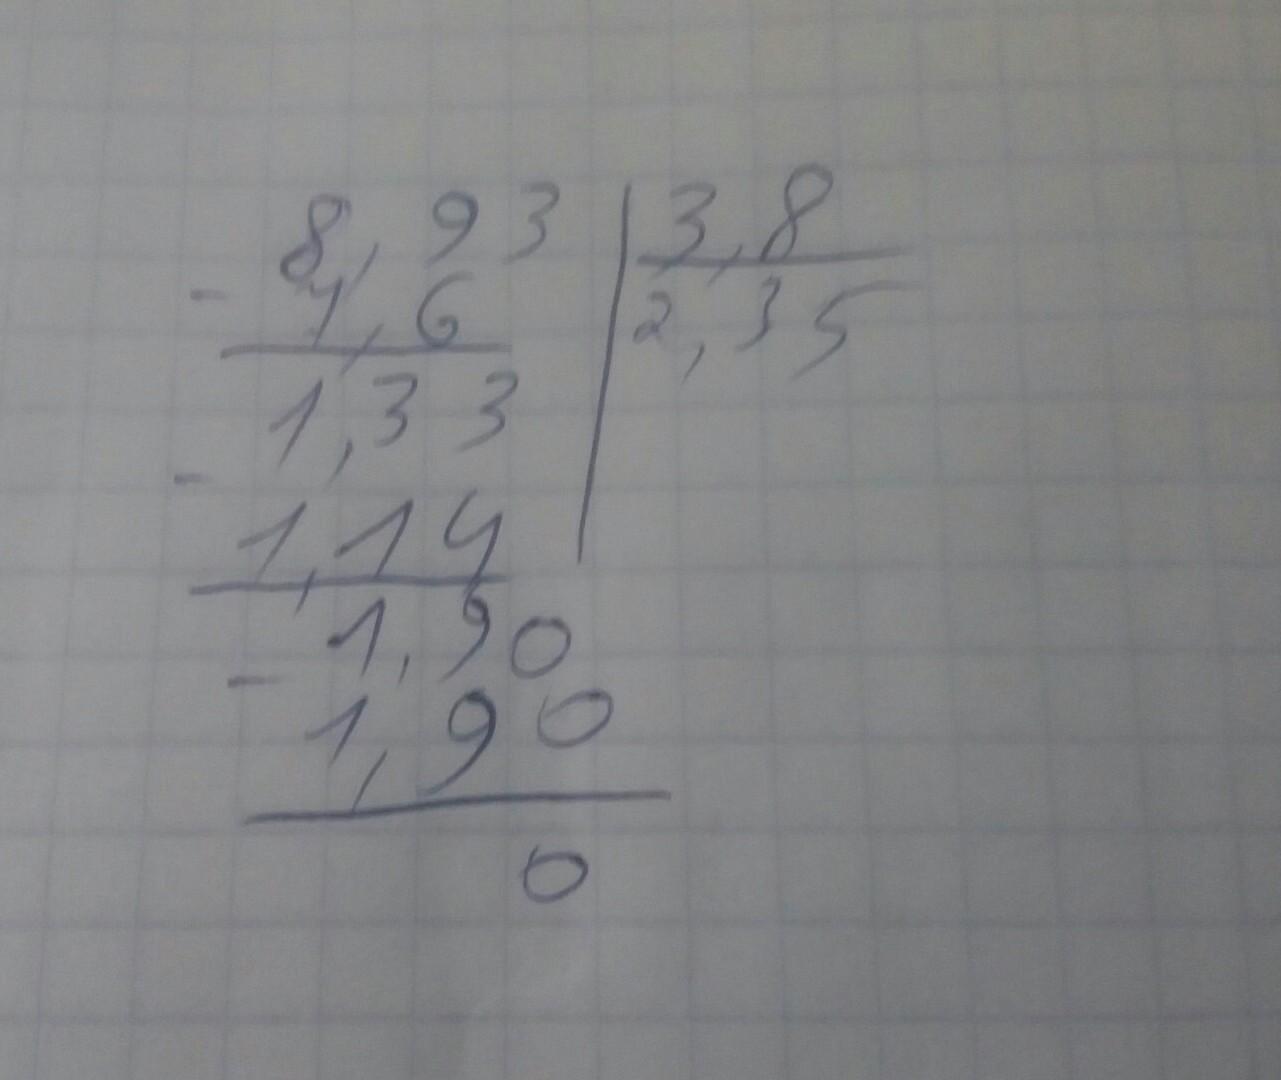 8,93 3,8
- 7,6 2,35
1,33
- 1,14
- 1,90
1,90
0